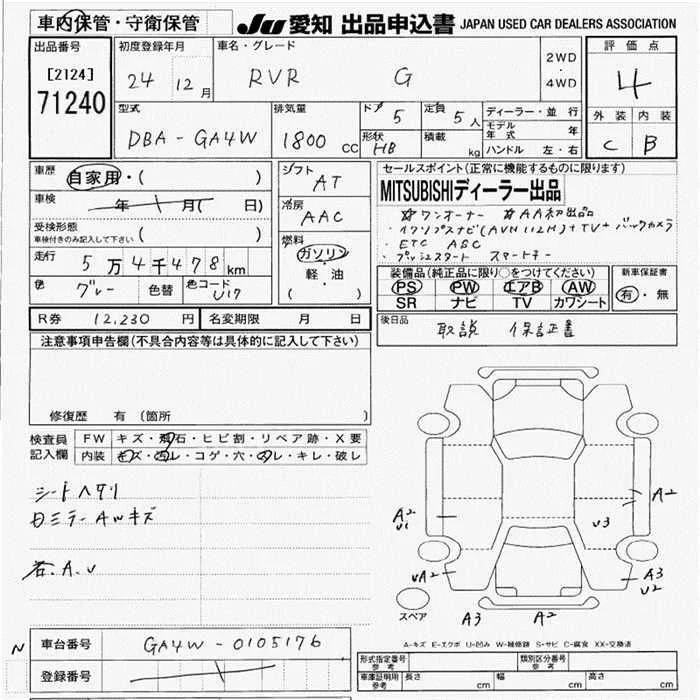 車内保管・守衛保管
JU 愛知 出品申込書 JAPAN USED CAR DEALERS ASSOCIATION
出品番号
[2124]
71240
初度登録年月
24 12月
車名・グレード
RVR G
2WD
・
4WD
評価点
4
外装 内装
C B
型式
DBA-GA4W
排気量
1800 cc
ドア 5
形状 HB
定員 5人
積載 kg
ディーラー・並行
モデル年式 年
ハンドル 左・右
車歴 自家用・( )
車検 年 月( 日)
受検形態
車検付きのみ記入して下さい ( )
走行 5万4千478km
色 グレー 色替 色コード U17
シフト AT
冷房 AAC
燃料
ガソリン
・
軽・油
( )
セールスポイント(正常に機能するものに限ります)
MITSUBISHIディーラー出品
☆ワンオーナー ☆AA初出品
・イクリプスナビ(AVN112M)+TV+バックカメラ
・ETC ASC
・プッシュスタート スマートキー
装備品(純正品に限り○をつけてください)
PS PW エアB AW
SR ナビ TV カワシート
新車保証書
有・無
R券 12,230円 名変期限 月 日
後日品 取説 保証書
注意事項申告欄(不具合内容等は具体的に記入して下さい)
修復歴 有(箇所
検査員記入欄
FW キズ・飛石・ヒビ割・リペア跡・X要
内装 キズ・汚レ・コゲ・穴・スレ・キレ・破レ
シートヘタリ
ミラーAWキズ
右.A.U
A2
U1
A2
U3
UA2
A3
U2
スペア
A3 A2
A-キズ E-エクボ U-凹み W-補修跡 S-サビ C-腐食 XX-交換済
N
車台番号 GA4W-0105176
登録番号
形式指定番号
参考
類別区分番号
参考
車庫証明用
参考
長さ cm 幅 cm 高さ cm